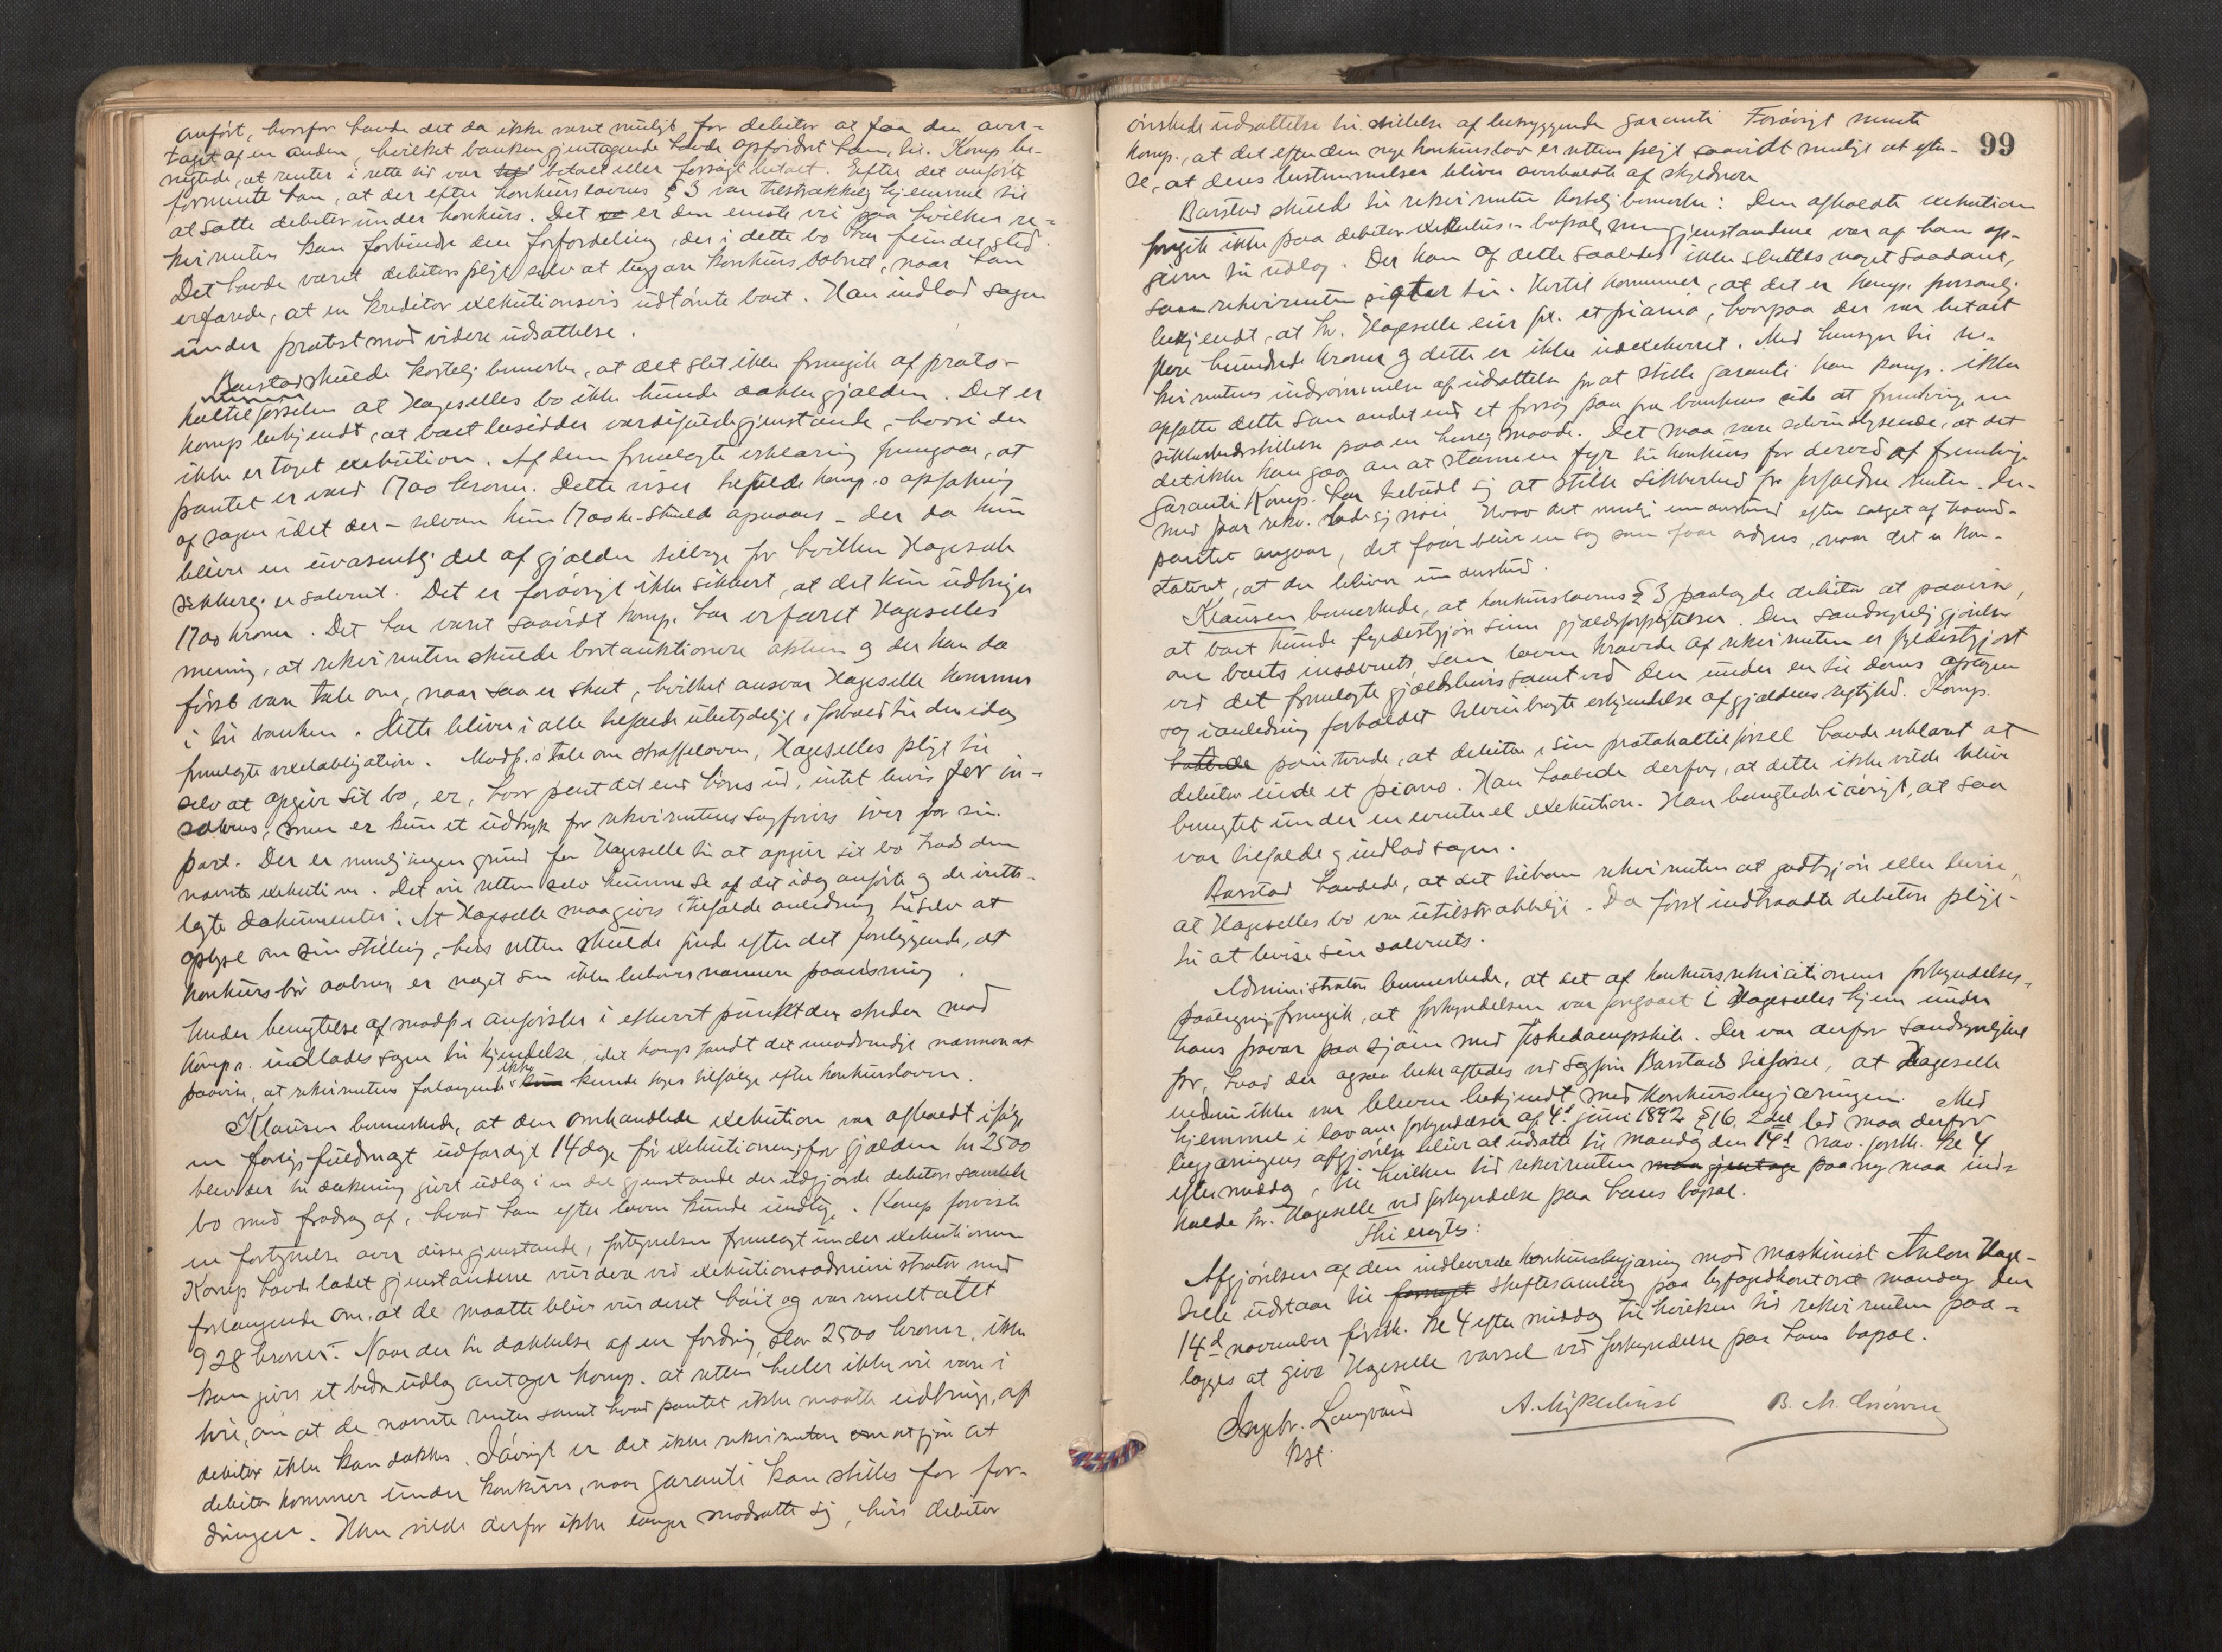 anført, hvorfor havde det da ikke været muligt for debitor at faa den over-
taget af en anden, hvilket banken gjentagende havde opfordret ham til. Komp. be-
nægtede, at renter i rette tid var betalt eller forsøgt betalt. Efter det anførte
formente han, at der efter konkurslovens § 3 var tilstrækkelig hjemmel til
at sætte debitor under konkurs. Det er den eneste vei paa hvilken re-
kvirenten kan forhindre den forfordeling, der i dette bo har fundet sted.
Det havde været debitors pligt selv at begjære konkurs aabnet, naar han
erfarede, at en kreditor exekutionsvis udtømte boet. Han indlod sagen
under protest mod videre udsættelse.
Barstad skulde kortelig bemerke, at det slet ikke fremgik af proto-
koltilførselen at Hageselles bo ikke kunde dække gjælden. Det er
komp bekjendt, at boet besidder værdifulde gjenstande, hvori der
ikke er taget exekution. Af den fremlagte erklæring fremgaar, at
pantet er værd 1700 kroner. Dette viser tilfulde komp.s opfatning
af sagen idet der – selvom kun 1700 kr. skuld opnaaes – der da kun
bliver en uvæsentlig del af gjælden tilbage for hvilken Hageselle
sikkerlig er solvent. Det er forøvrigt ikke sikkert, at det kun udbringes
1700 kroner. Det har været saavidt komp. har erfaret Hageselles
mening, at rekvirenten skulde bortauktionere aktien og der kan da
først være tale om, naar saa er skeet, hvilket ansvar Hageselle kommer
i til banken. Dette bliver i alle tilfælde ubetydelig i forhold til den idag
fremlagte vexelobligation. Modp.s tale om straffeloven, Hageselles pligt til
selv at opgive sit bo, er, hvor pent det end høres ud, intet bevis for in-
solvens, men er kun et udtryk for rekvirentens sagførers iver for sin
part. Der er nemlig ingen grund for Hageselle til at opgive sit bo trods den
nævnte exekution. Det vil retten selv kunne se af det idag anførte og de irette-
lagte dokumenter. At Hageselle maa gives i tilfælde anledning til selv at
oplyse om sin stilling, hvis retten skulde finde efter det foreliggende, at
konkurs bør aabnes, er noget som ikke behøver nærmere paavisning.
Under benegtelse af modp.s anførsler i ethvert punkt der strider mod
komp.s indlodes sagen til kjendelse, idet komp fandt det unødvendig nærmere at
paavise, at rekvirentens forlangende ikke kunde tages tilfølge efter konkursloven.
Klausen bemerkede, at den omhandlede exekution var afholdt ifølge
en forligsfuldmagt udfærdiget 14 dage før exekutionen; for gjælden kr 2500
blev der til dækning gjort udlæg i en del gjenstande der udgjorde debitors samtlede
bo med fradrag af, hvad han efter loven kunde undtage. Komp foreviste
en fortegnelse over disse gjenstande, fortegnelsen fremlagt under exekutionen
Komp havde ladet gjenstandene vurdere ved exekutionsadministrator med
forlangende om, at de maatte blive vurderet høit og var resultatet
928 kroner. Naar der til dækkelse af en fordring, stor 2500 kroner, ikke
kan gives et bedre udlæg antager komp. at retten heller ikke vil være i
tvil, om at de nævnte renter samt hvad pantet ikke maatte udbringe, af
debitor ikke kan dækkes. Iøvrigt er det ikke rekvirenten om at gjøre at
debitor kommer under konkurs, naar garanti kan stilles for for-
dringen. Han vilde derfor ikke længer modsætte sig, hvis debitor
99
ønskede udsættelse til stillelse af betryggende garanti. Forøvrigt mente
komp., at det efter den nye konkurslov er rettens pligt saavidt muligt at efter-
se, at dens bestemmelser bliver overholdte af skyldnere
Barstad skulde til rekvirenten kortelig bemerke: Den afholdte exekution
foregik ikke paa debitor Hageselles bopæl, men gjenstandene var af ham op-
givne til udlæg. Der kan af dette saaledes ikke sluttes noget saadant,
som rekvirenten sigter til. Hertil kommer, at det er komp. personlig
bekjendt, at hr. Hageselle eier f.ex. et piano, hvorpaa der var betalt
flere hundrede kroner og dette er ikke udexekveret. Med hensyn til re-
kvirentens indrømmelse af udsættelse for at stille garanti kan komp. ikke
opfatte dette som andet end et forsøg paa fra bankens side at fremtvinge en
sikkerhedsstillelse paa en behændig maade. Det maa være selvindlysende, at det
det ikke kan gaa an at stævne en fyr til konkurs for derved at fremtvinge
garanti. Komp. har tilbudt sig at stille sikkerhed for forfaldne renter. Der-
med har rekv. ladet sig nøie. Hvad det mulige underskud efter salget af haand-
pantet angaar, det faar blive en sag som faar ordnes, naar det er kon-
stateret, at der bliver underskud.
Klausen bemerkede, at konkurslovens § 3 paalagde debitor at paavise,
at boet kunde fyldestgjøre sine gjældsforpligtelser. Den sandsynliggjørelse
om boets insolvents som loven krævede af rekvirenten er fyldestgjort
ved det fremlagte gjældsbevis samt ved den under en til dens afsigen
sag i anledning forholdet tilveiebragte erkjendelse af gjældens rigtighed. Komp.
pointerede, at debitor i sin protokoltilførsel havde erklæret at
debitor eiede et piano. Han haabede derfor, at dette ikke vilde blive
benegtet under en eventuel exekution. Han benegtede iøvrigt, at saa
var tilfælde og indlod sagen.
Barstad hævdede, at det tilkom rekvirenten at godtgjøre eller bevise,
at Hageselles bo var utilstrækkelig. Da først indtraadte debitors pligt
til at bevise sin solvents.
Administrator bemerkede, at det af konkursrekvisitionens forkyndelses-
paategning fremgik, at forkyndelsen var foregaaet i Hageselles hjem under
hans fravær paa sjøen med fiskedampskib. Der var derfor sandsynlighed
for, hvad der ogsaa bekræftedes ved sagfører Barstads tilførsel, at Hageselle
endnu ikke var bleven bekjendt med konkursbegjæringen. Med
hjemmel i lov om forkyndelser af 4de juni 1892 § 16, 2det led maa derfor
begjæringens afgjørelse blive at udsætte til mandag den 14de nov. førstk. kl. 4
eftermiddag, til hvilken tid rekvirenten paany maa ind-
kalde hr. Hageselle ved forkyndelse paa hans bopæl.
Thi eragtes:
Afgjørelsen af den indleverede konkursbegjæring mod maskinist Anton Hage-
selle udstaar til skiftesamling paa byfogedkontoret mandag den
14de november førstk. kl. 4 eftermiddag til hvilken tid rekvirenten paa-
lægges at give Hageselle varsel ved forkyndelse paa hans bopæl.
Ingebr. Langvand
A. Myklebust
kst.